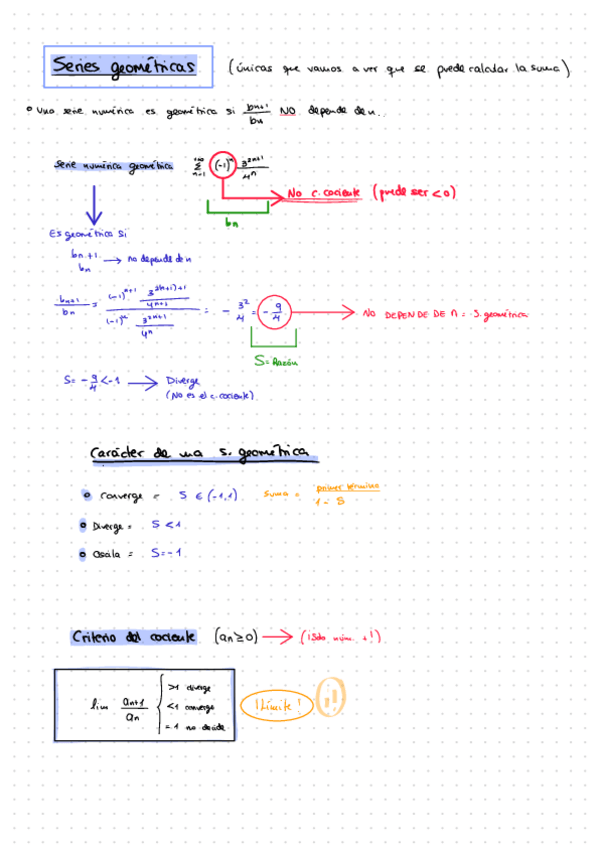 Series geométricas (únicas que vamos a ver que se puede calcular la suma)
• Una serie numérica es geométrica si bn+1/bn NO depende de n.
Serie numérica geométrica +∞ Σ n=1 (-1)^n 3^(2n+1)/4^n
No c. cociente (puede ser <0)
bn
Es geométrica si
bn+1/bn → no depende de n
bn+1/bn = ((-1)^(n+1) 3^(2(n+1)+1)/4^(n+1))/((-1)^n 3^(2n+1)/4^n) = - 3^2/4 = - 9/4 → NO DEPENDE DE n = S. geométrica
S = Razón
S = - 9/4 < -1 → Diverge
(No es el c. cociente)
Carácter de una s. geométrica
Converge = S ∈ (-1,1) suma = primer término/1 - S
Diverge = S < 1
Oscila = S = -1
Criterio del cociente (an ≥ 0) → (¡Solo núm. +!)
lim an+1/an { >1 diverge
<1 converge
= 1 no decide
¡Límite!